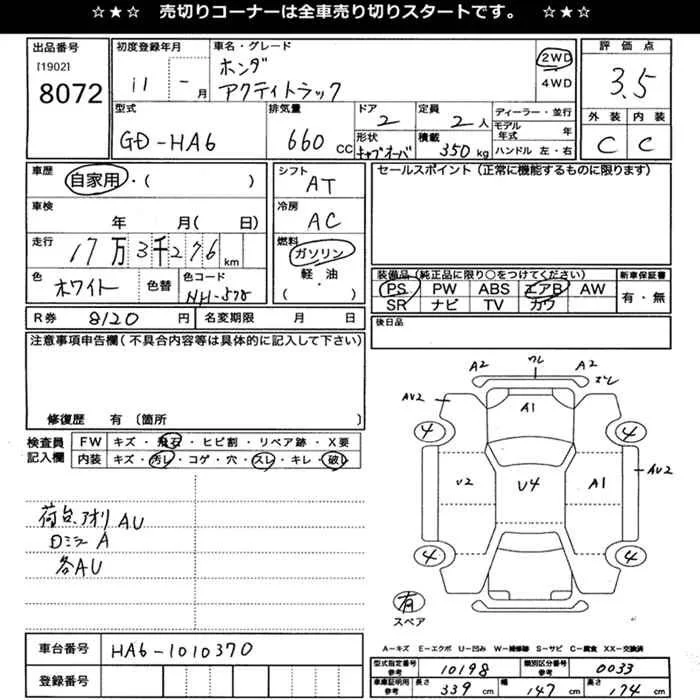 ☆★☆ 売切りコーナーは全車売り切りスタートです。 ☆★☆
出品番号
[1902]
8072
初度登録年月
11 - 月
車名・グレード
ホンダ
アクティトラック
2WD
4WD
評価点
3.5
外装 内装
C C
型式
GD-HA6
排気量
660 CC
ドア
2
形状
キャブオーバ
定員
2 人
積載
350 kg
ディーラー・並行
モデル年式 年
ハンドル 左・右
車歴
自家用・( )
車検
年 月( 日)
走行
17万3千276 km
色
ホワイト
色替
色コード
NH-578
シフト
AT
冷房
AC
燃料
ガソリン
軽・油
( )
セールスポイント(正常に機能するものに限ります)
装備品(純正品に限り○をつけてください)
PS PW ABS エアB AW
SR ナビ TV カワ
新車保証書
有・無
R券 8120 円
名変期限 月 日
後日品
注意事項申告欄(不具合内容等は具体的に記入して下さい)
修復歴 有 〔箇所 〕
検査員
記入欄
FW キズ・飛石・ヒビ割・リペア跡・X要
内装 キズ・汚レ・コゲ・穴・スレ・キレ・破レ
荷台、アオリ AU
Dミラー A
各AU
A2
ワレ
A2
ズレ
AU2
A1
4
4
U2
U4
A1
AU2
4
4
有
スペア
車台番号 HA6-1010370
登録番号
A-キズ E-エクボ U-凹み W-補修跡 S-サビ C-腐食 XX-交換済
型式指定番号
参考
10198
類別区分番号
参考
0033
車庫証明用
参考
長さ 339 cm
幅 147 cm
高さ 174 cm